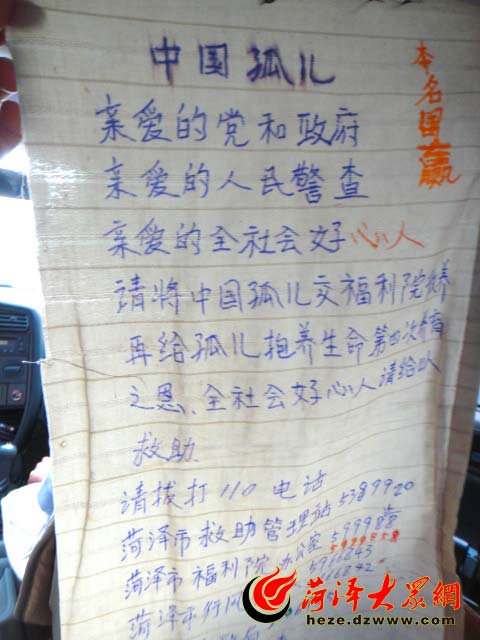 中国孤儿
本名国赢
亲爱的党和政府
亲爱的人民警查
亲爱的全社会好心人
请将中国孤儿交福利院扶养
再给孤儿抱养生命第四次养育
之恩、全社会好心人请给以
救助
请拔打110电话
菏泽市救助管理站5389920
菏泽市福利院办公室
菏泽市行风
菏泽大眾網
heze.dzwww.com